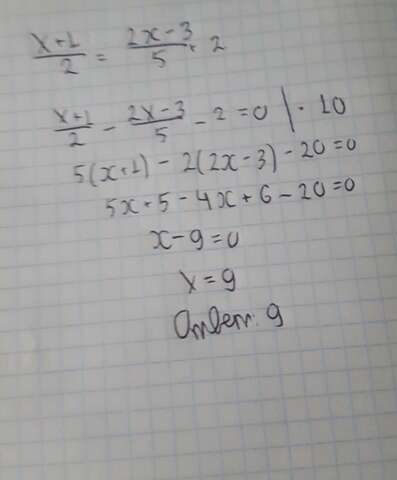 x+1/2 = 2x-3/5 + 2
x+1/2 - 2x-3/5 - 2 = 0 | · 10
5(x+1) - 2(2x-3) - 20=0
5x+5 - 4x+6 - 20=0
x-9=0
x=9
Ответ: 9